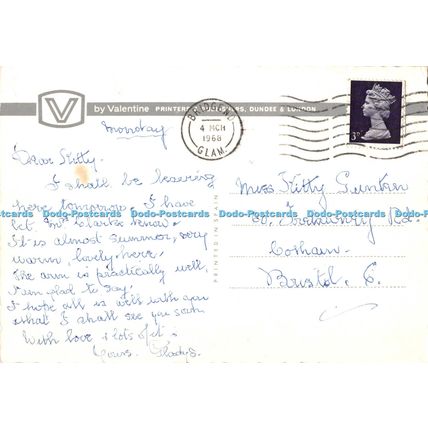 V by Valentine PRINTERS & PUBLISHERS, DUNDEE & LONDON
BRIDGEND
4 MCH
1968
GLAM.
3D
Monday
Dear Kitty.
I shall be leaving
here tomorrow. I have
let Mrs Clarke know.
It is almost summer, very
warm, lovely here.
The arm is practically well,
I'm glad to say.
I hope all is well with you
I shall see you soon
With love & lots of it.
Yours. Gladys.
PRINTED IN SPAIN
Miss Kitty
Rd.
Cotham.
Bristol. 6.
Dodo-Postcards Dodo-Postcards Dodo-Postcards Dodo-Postcards Dodo-Postcards